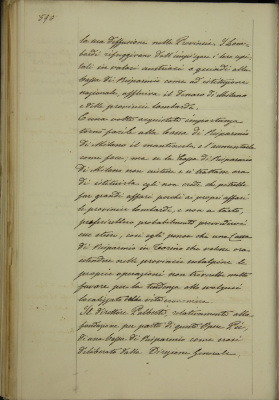 590
la sua diffusione nelle Provincie. I Lom-
bardi rifuggivano dall'impiegare i loro capi-
tali in valori austriaci e quindi alla
Cassa di Risparmio come ad istituzione
nazionale, affluiva il denaro di Milano
e delle provincie lombarde.
E una volta acquistata importanza
tornò facile alla Cassa di Risparmio
di Milano il mantenerla e l'accrescerla
come fece, ma se la Cassa di Risparmio
di Milano non esistesse e si trattasse ora
di istituirla egli non crede che potrebbe
far grandi affari perchè ai proprî affari
le provincie lombarde, e non a torto,
preferirebbero probabilmente provvedere
se stesse; così egli pensa che una Cassa
di Risparmio in Torino che volesse ora
estendere nelle provincie subalpine le
proprie operazioni non troverebbe molto
favore per la tendenza alle
localizzate vita economica.
Il Direttore relativamente alla
fondazione per parte di questa Opera Pia,
di una Cassa di Risparmio come erasi
deliberato dalla Direzione Generale,